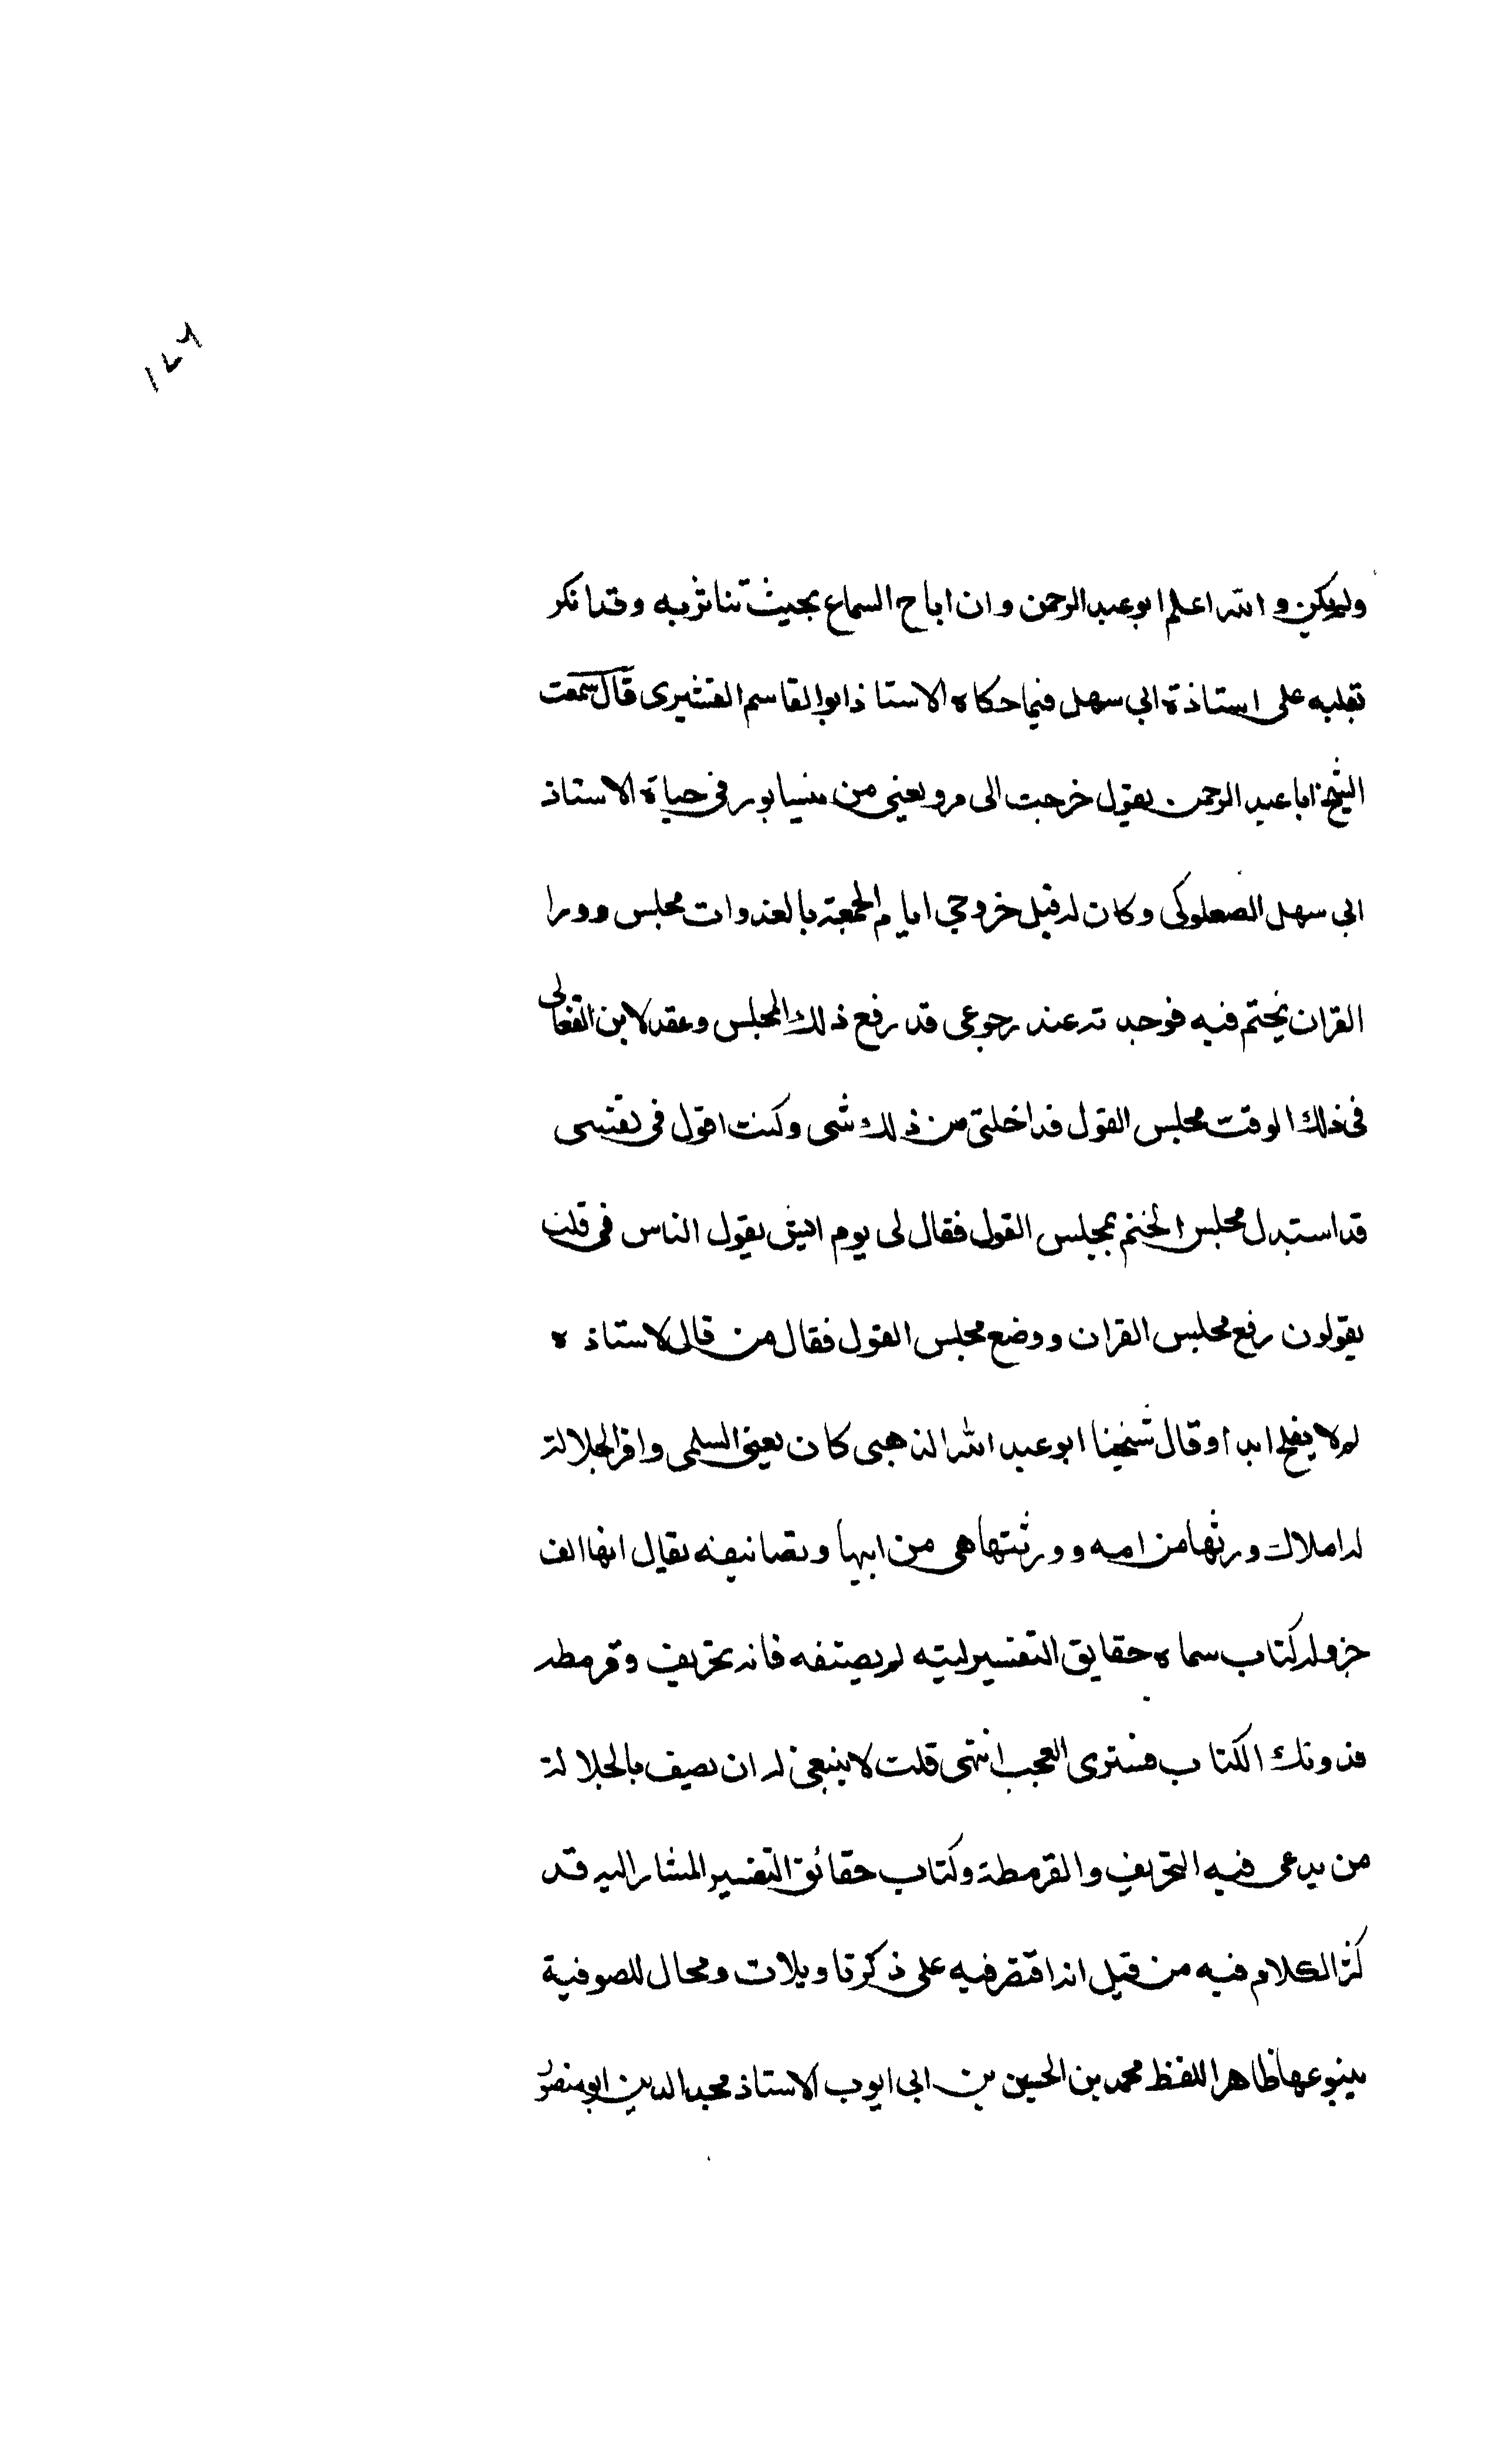 ١٤٦
ولم يكن والله اعلم ابو عبد الرحمن وان اباح السماع بحيث تناثر به وقد انكر
تقلبه على استاذة ابي سهل فيما حكاه الاستاذ ابو القاسم القشيرى قال سمعت
الشيخ ابا عبد الرحمن يقول خرجت الى مرو يعني من نيسابور في حياة الاستاذ
ابي سهل الصعلوكى وكان له قبل خروجي ايام الجمعة بالغدوات مجلس وورا
القران يختم فيه فوجدته عند رجوعى قد رفع ذلك المجلس وعقد لابن القعالى
في ذلك الوقت مجلس القول فداخلنى من ذلك شى وكنت اقول فى نفسى
قد استبدل مجلس الختم بمجلس القول فقال لى يوم ايش يقول الناس فى قلت
يقولون رفع مجلس القران ووضع مجلس القول فقال من قال لاستاذه
لم لا يفلح ابدا وقال شيخنا ابو عبد الله الذهبى كان يعنى السلمى وافر الجلالة
له املاك ورثها من امه وورثتها هى من ابيها وتصانيفه يقال انها الف
جزو له كتاب سماه حقايق التفسير ليته لم يصنفه فانه تحريف وقرمطه
فدونك الكتاب فسترى العجب انتهى قلت لا ينبغى له ان يصف بالجلالة
من يدعى فيه التحريف والقرمطة وكتاب حقائق التفسير المشار اليه قد
كثر الكلام فيه من قبل انه اقتصر فيه على ذكر تاويلات ومحال للصوفية
ينبوعها ظاهر اللفظ محمد بن الحسين بن ابى ايوب الاستاذ مجد الدين ابو منصور